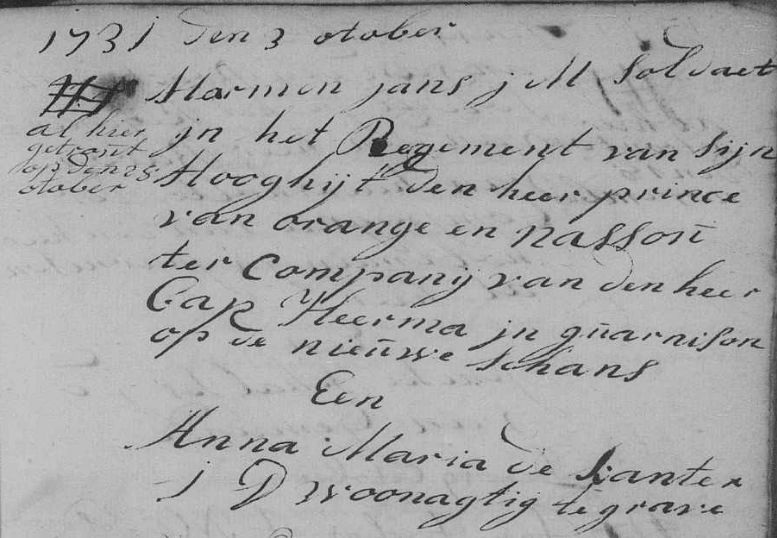 1731 den 3 otober
Harmen jans j M Soldaet
al hier
getrout
op den 28
otober
jn het Regement van Sijn
Hooghijt den heer prince
van orange en nassoũ
ter Compang van den heer
Cap Heerma jn gũarnison
op de nieũwe Schans
Een
Anna Maria de kanter
J D woonagtig te grave